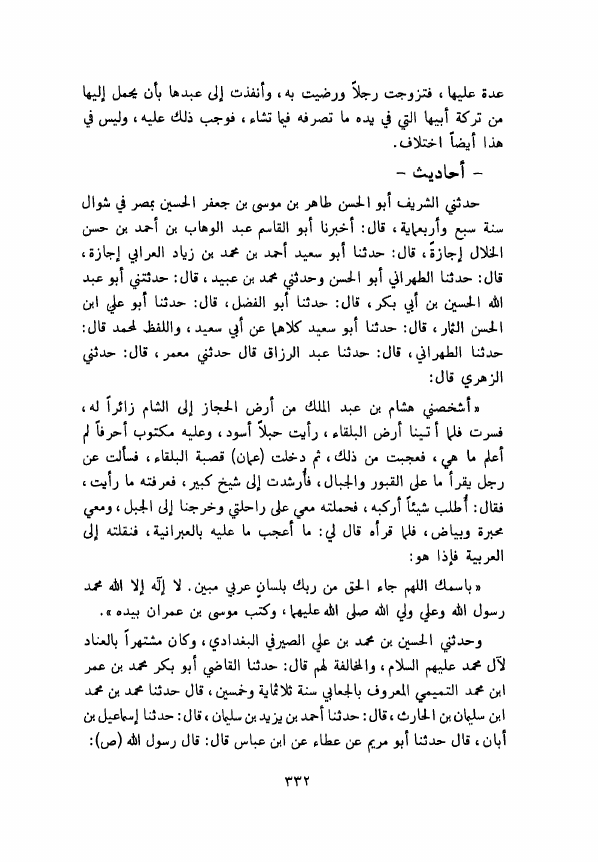 عدة عليها، فتزوجت رجلاً ورضيت به، وأنفذت إلى عبدها بأن يحمل إليها
من تركة أبيها التي في يده ما تصرفه فيما تشاء، فوجب ذلك عليه، وليس في
هذا أيضاً اختلاف.
- أحاديث -
حدثني الشريف أبو الحسن طاهر بن موسى بن جعفر الحسين بمصر في شوال
سنة سبع وأربعماية، قال: أخبرنا أبو القاسم عبد الوهاب بن أحمد بن حسن
الخلال إجازةً، قال: حدثنا أبو سعيد أحمد بن محمد بن زياد العرابي إجازة،
قال: حدثنا الطهراني أبو الحسن وحدثني محمد بن عبيد، قال: حدثتني أبو عبد
الله الحسين بن أبي بكر، قال: حدثنا أبو الفضل، قال: حدثنا أبو علي ابن
الحسن التمار، قال: حدثنا أبو سعيد كلاهما عن أبي سعيد، واللفظ لمحمد قال:
حدثنا الطهراني، قال: حدثنا عبد الرزاق قال حدثني معمر، قال: حدثني
الزهري قال:
«أشخصني هشام بن عبد الملك من أرض الحجاز إلى الشام زائراً له،
فسرت فلما أتينا أرض البلقاء، رأيت حبلاً أسود، وعليه مكتوب أحرفاً لم
أعلم ما هي، فعجبت من ذلك، ثم دخلت (عمان) قصبة البلقاء، فسألت عن
رجل يقرأ ما على القبور والجبال، فأُرشدت إلى شيخ كبير، فعرفته ما رأيت،
فقال: أُطلب شيئاً أركبه، فحملته معي على راحلتي وخرجنا إلى الجبل، ومعي
محبرة وبياض، فلما قرأه قال لي: ما أعجب ما عليه بالعبرانية، فنقلته إلى
العربية فإذا هو:
«باسمك اللهم جاء الحق من ربك بلسانٍ عربي مبين. لا إلّه إلا الله محمد
رسول الله وعلي ولي الله صلى الله عليهما، وكتب موسى بن عمران بيده».
وحدثني الحسين بن محمد بن علي الصيرفي البغدادي، وكان مشتهراً بالعناد
لآل محمد عليهم السلام، والمخالفة لهم قال: حدثنا القاضي أبو بكر محمد بن عمر
ابن محمد التميمي المعروف بالجعابي سنة ثلاثماية وخمسين، قال حدثنا محمد بن محمد
ابن سليمان بن الحارث، قال: حدثنا أحمد بن يزيد بن سليمان، قال: حدثنا إسماعيل بن
أبان، قال حدثنا أبو مريم عن عطاء عن ابن عباس قال: قال رسول الله (ص):
٣٣٢